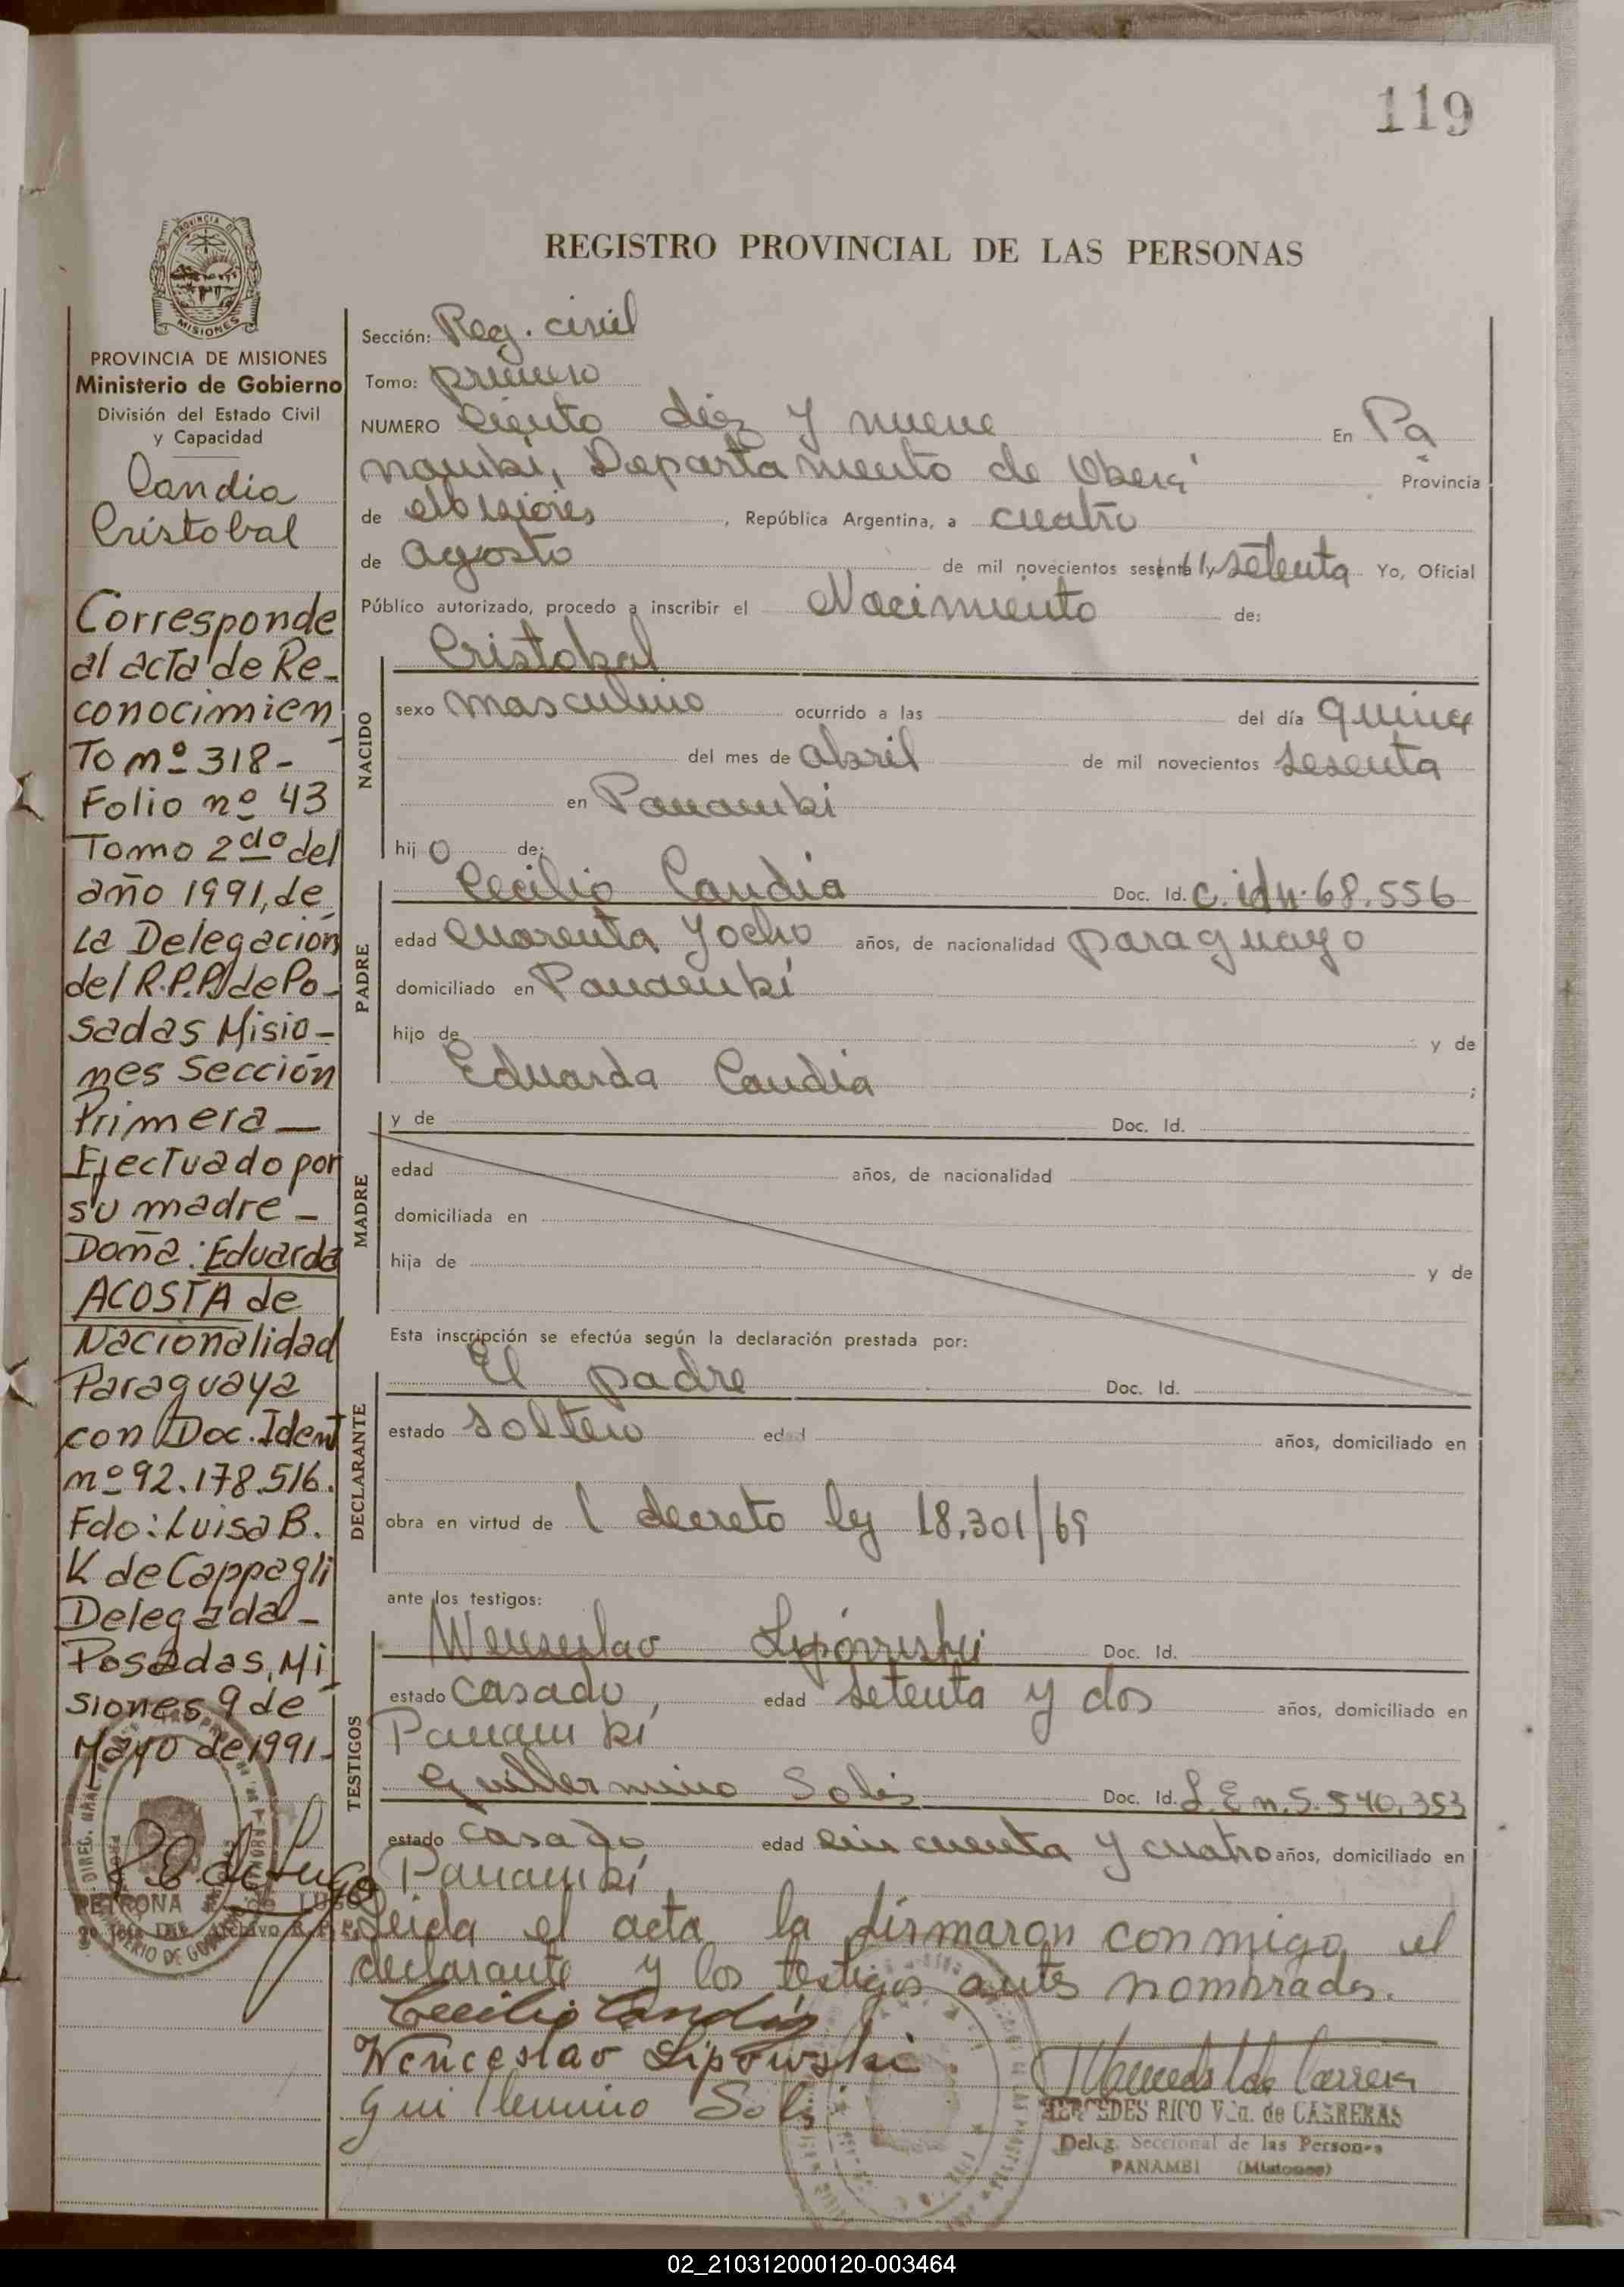 119
REGISTRO PROVINCIAL DE LAS PERSONAS
PROVINCIA DE MISIONES
Ministerio de Gobierno
División del Estado Civil
y Capacidad
Candia
Cristobal
Corresponde
al acta de Re-
conocimien
To nº 318-
Folio nº 43
Tomo 2do del
año 1991, de
La Delegación
del R.P.P. de Po-
sadas Misio-
nes Sección
Primera —
Efectuado por
su madre -
Doña: Eduarda
ACOSTA de
Nacionalidad
Paraguaya
con Doc. Ident
nº 92.178.516.
Fdo: Luisa B.
K de Cappagli
Delegada -
Posadas, Mi
siones 9 de
Mayo de 1991-
PETRONA
Sección: Reg. civil
Tomo: primero
NUMERO Ciento diez y nueve En Pa
nambi, Departamento de Oberá Provincia
de Misiones, República Argentina, a cuatro
de agosto de mil novecientos sesenta y setenta Yo, Oficial
Público autorizado, procedo a inscribir el Nacimiento de:
NACIDO
Cristobal
sexo masculino ocurrido a las del día quince
del mes de abril de mil novecientos sesenta
en Panambi
hij o de:
PADRE
Cecilio Candia Doc. Id. C. idn. 68.556
edad cuarenta y ocho años, de nacionalidad paraguayo
domiciliado en Panambí
hijo de y de
Eduarda Candia ;
MADRE
y de Doc. Id.
edad años, de nacionalidad
domiciliada en
hija de y de
Esta inscripción se efectúa según la declaración prestada por:
DECLARANTE
El padre Doc. Id.
estado soltero edad años, domiciliado en
obra en virtud de l decreto ley 18.301/69
ante los testigos:
TESTIGOS
Wenseslao Lipowski Doc. Id.
estado casado, edad setenta y dos años, domiciliado en
Panambí
Guillermino Solis Doc. Id. L.E n. 5.540.353
estado casado edad cincuenta y cuatro años, domiciliado en
Panambí
Leida el acta la firmaron conmigo el
declarante y los testigos antes nombrados.
Cecilio Candia
Wenceslao Lipowski
Guillermino Solis
MERCEDES RICO Vda. de CARRERAS
Deleg. Seccional de las Personas
PANAMBI (Misiones)
02_210312000120-003464